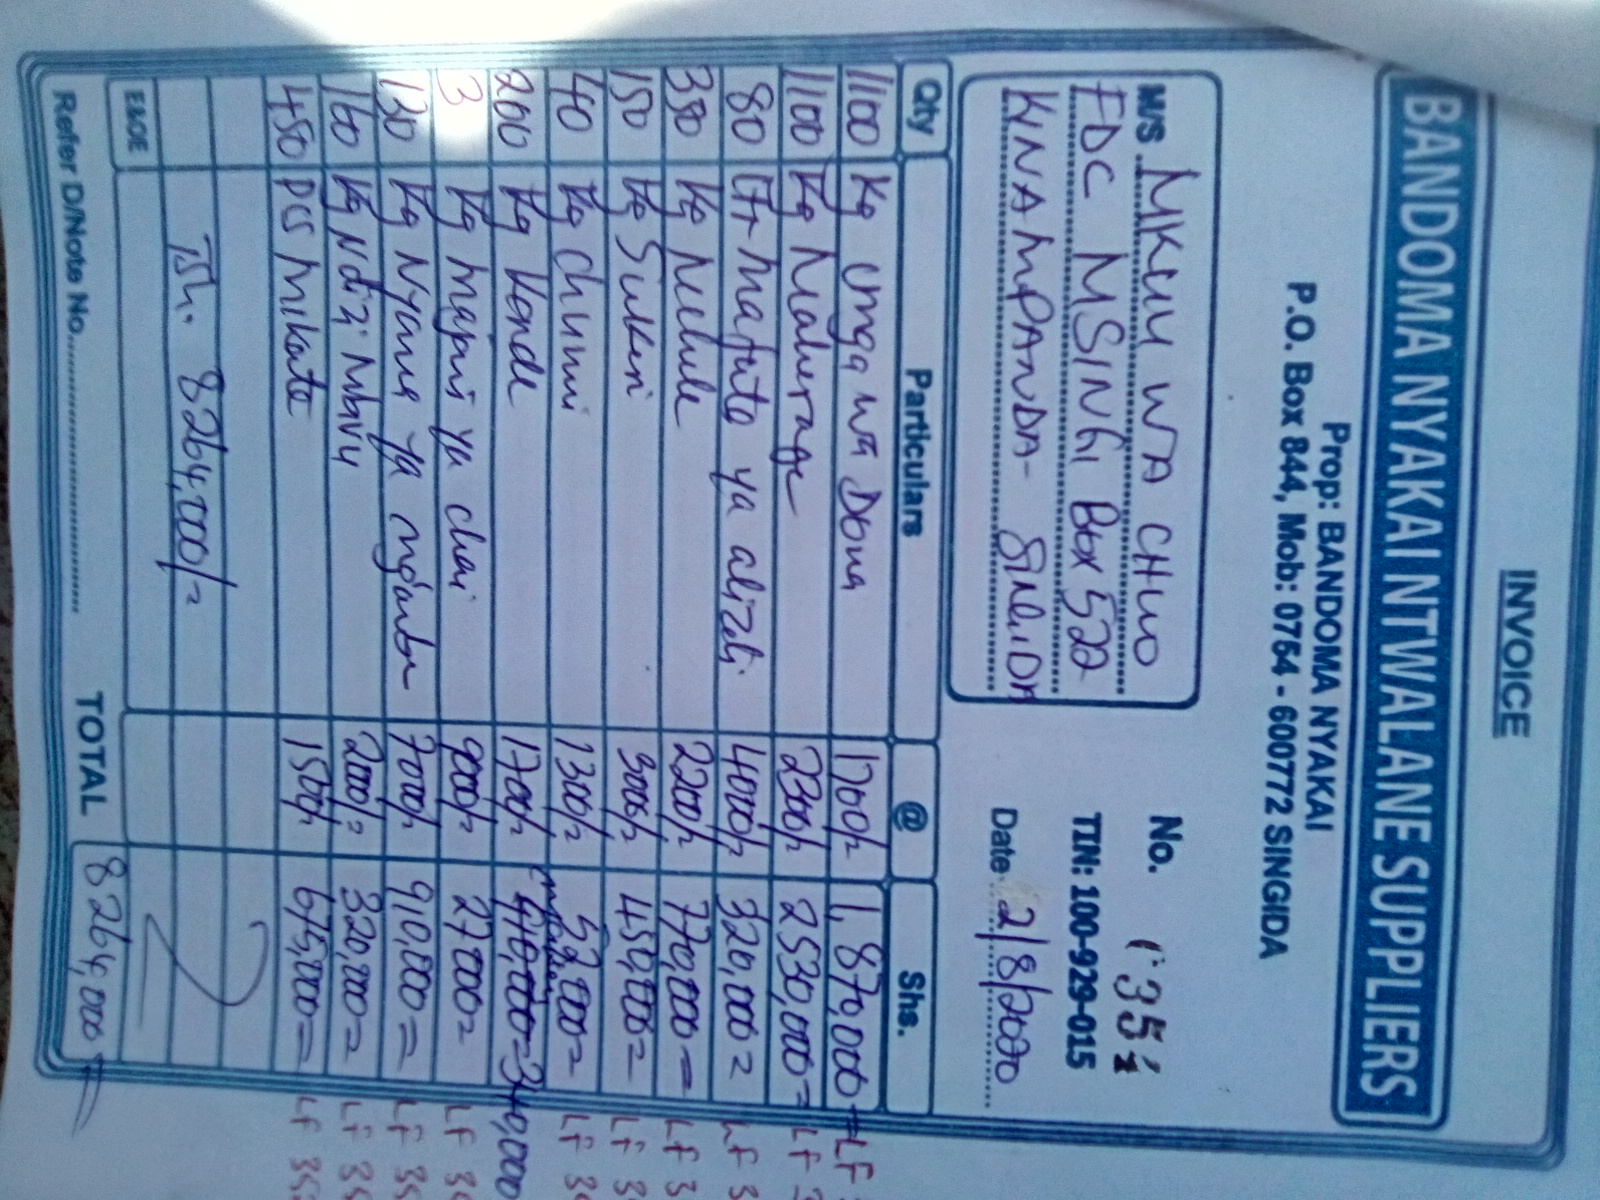 INVOICE
BANDOMA NYAKAI NTWALANE SUPPLIERS
Prop: BANDOMA NYAKAI
P.O. Box 844, Mob: 0754 - 600772 SINGIDA
M/S MKUU WA CHUO
FDC MSINGI BOX 522
KINAMPANDA - SINGIDA
No. 1351
TIN: 100-929-015
Date 2/8/2020
Qty Particulars @ Shs.
1100 Kg Unga wa Dona 1700/= 1,870,000= LF
1100 Kg Maherage 2300/= 2530,000= LF 3
80 Ltr Mafuta ya alizeti 4000/= 320,000= LF 3
350 Kg Mchele 2200/= 770,000= LF 3
150 Kg Sukari 3000/= 450,000= LF 3
40 Kg Chumvi 1300/= 52,000= LF 3
200 Kg Konde 1700/= 340,000
3 Kg Majani ya chai 9000/= 27000= LF 3
130 Kg Nyama ya ng'ombe 7000/= 910,000= LF 35
160 Kg Ndizi Mbivu 2000/= 320,000= LF 35
450 PCS Mikate 1500/= 675,000= LF 35
Tsh. 8264,000/=
E&OE
Refer D/Note No. TOTAL 8264,000=